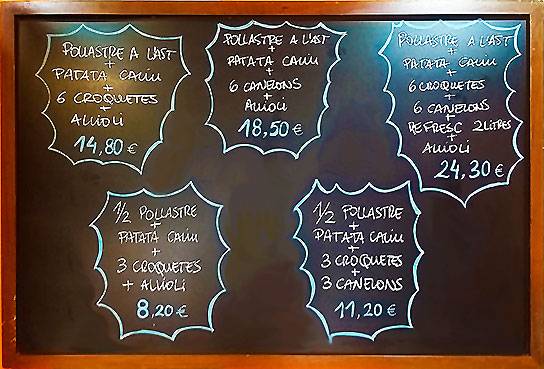 POLLASTRE A L'AST
+
PATATA CALIU
+
6 CROQUETES
+
ALLIOLI
14,80 €
POLLASTRE A L'AST
+
PATATA CALIU
+
6 CANELONS
+
ALLIOLI
18,50 €
POLLASTRE A L'AST
+
PATATA CALIU
+
6 CROQUETES
+
6 CANELONS
+
REFRESC 2 LITRES
+
ALLIOLI
24,30 €
1/2 POLLASTRE
+
PATATA CALIU
+
3 CROQUETES
+ ALLIOLI
8,20 €
1/2 POLLASTRE
+
PATATA CALIU
+
3 CROQUETES
+
3 CANELONS
11,20 €